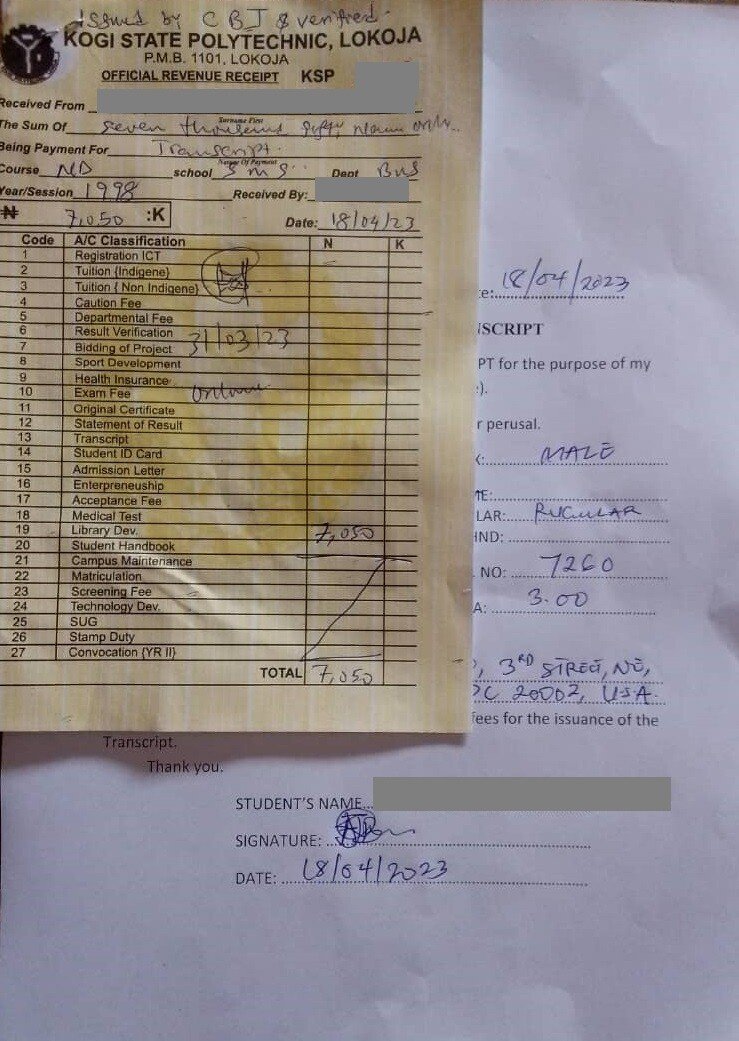 issued by C B J & verified.
KOGI STATE POLYTECHNIC, LOKOJA
P.M.B. 1101, LOKOJA
OFFICIAL REVENUE RECEIPT KSP
Received From
Surname First
The Sum Of seven thousand fifty Naira only..
Being Payment For Transcript.
Nature Of Payment
Course ND school SMS Dept BUS
Year/Session 1998 Received By:
₦ 7,050 :K Date: 18/04/23
Code A/C Classification N K
1 Registration ICT
2 Tuition {Indigene}
3 Tuition { Non Indigene}
4 Caution Fee
5 Departmental Fee
6 Result Verification
7 Bidding of Project 31/03/23
8 Sport Development
9 Health Insurance
10 Exam Fee online
11 Original Certificate
12 Statement of Result
13 Transcript
14 Student ID Card
15 Admission Letter
16 Enterpreneuship
17 Acceptance Fee
18 Medical Test
19 Library Dev. 7,050
20 Student Handbook
21 Campus Maintenance
22 Matriculation
23 Screening Fee
24 Technology Dev.
25 SUG
26 Stamp Duty
27 Convocation {YR II}
TOTAL 7,050
e: 18/04/2023
NSCRIPT
PT for the purpose of my
:).
r perusal.
MALE
ME:
LAR: RUGULAR
IND:
NO: 7260
A: 3.00
, 3RD STREET, NE,
DC 20002, USA
fees for the issuance of the
Transcript.
Thank you.
STUDENT'S NAME...
SIGNATURE:
DATE: 18/04/2023